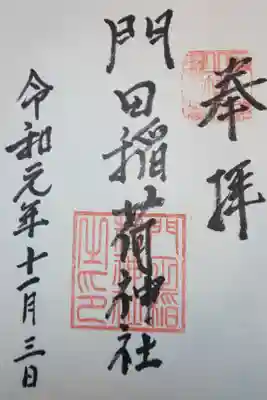 奉拝
門田稲荷神社
令和元年十一月三日